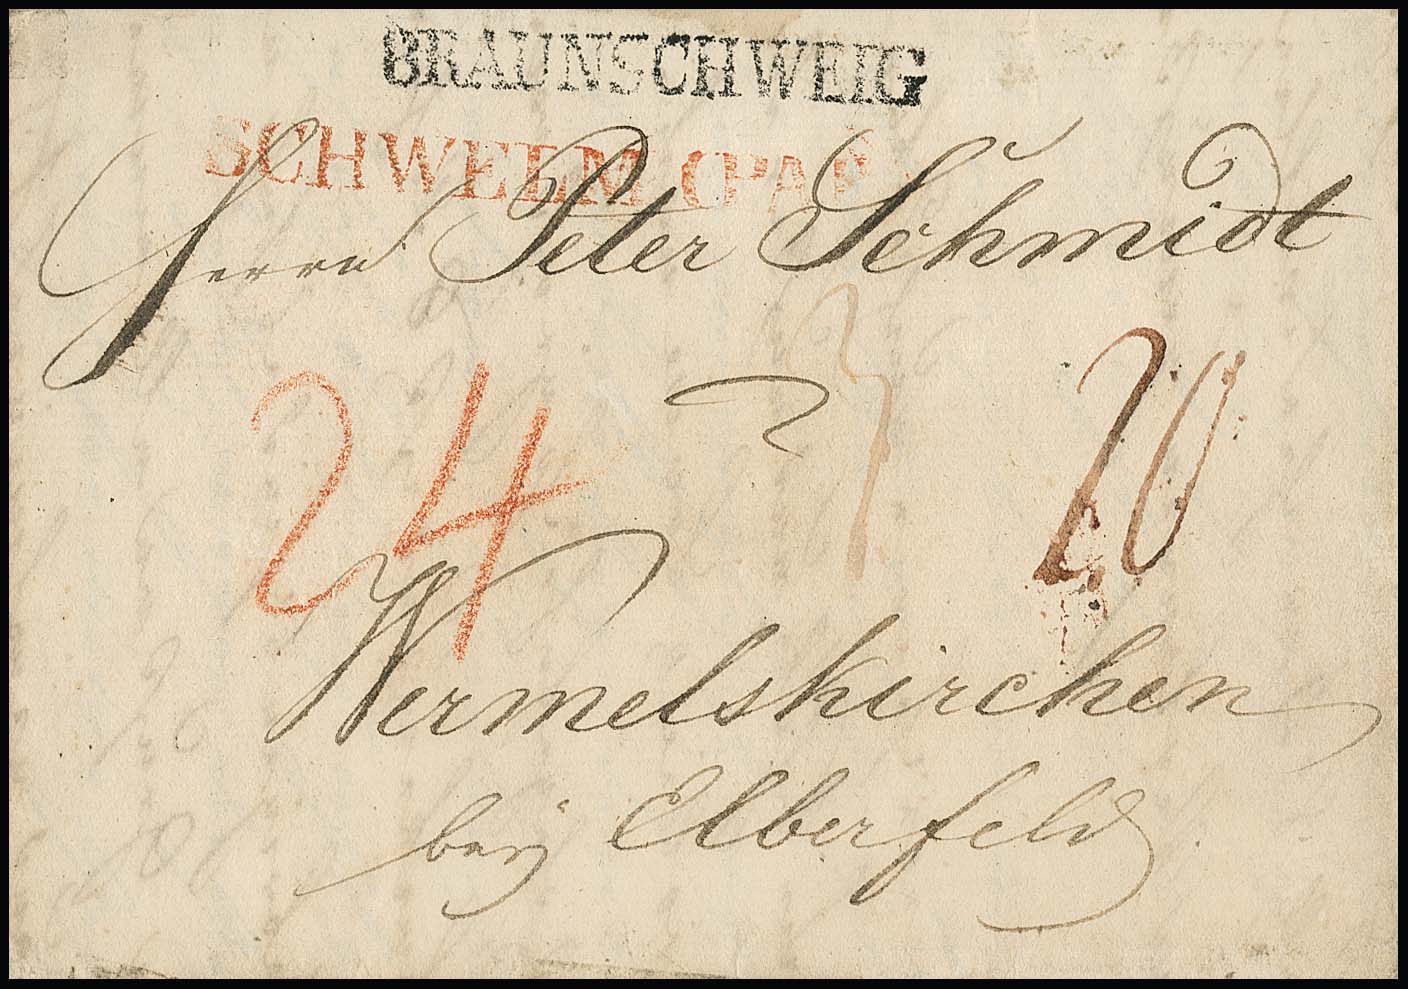 BRAUNSCHWEIG
SCHWELM (PAR
Herrn Peter Schmidt
24
20
Wermelskirchen
beÿ Elberfeld